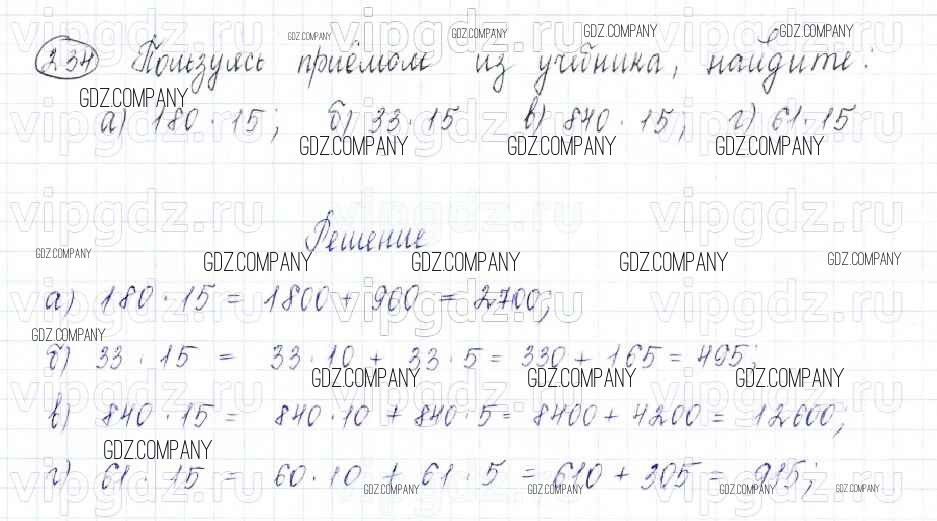 234 Пользуясь приёмом из учебника, найдите:
а) 180 · 15; б) 33 · 15 в) 840 · 15; г) 61 · 15
Решение
а) 180 · 15 = 1800 + 900 = 2700;
б) 33 · 15 = 33 · 10 + 33 · 5 = 330 + 165 = 495;
в) 840 · 15 = 840 · 10 + 840 · 5 = 8400 + 4200 = 12600;
г) 61 · 15 = 60 · 10 + 61 · 5 = 610 + 305 = 915;
vipgdz.ru vipgdz.ru vipgdz.ru
GDZ.COMPANY GDZ.COMPANY GDZ.COMPANY GDZ.COMPANY
GDZ.COMPANY
GDZ.COMPANY GDZ.COMPANY GDZ.COMPANY
vipgdz.ru vipgdz.ru vipgdz.ru
vipgdz.ru vipgdz.ru vipgdz.ru
GDZ.COMPANY GDZ.COMPANY GDZ.COMPANY GDZ.COMPANY GDZ.COMPANY
vipgdz.ru vipgdz.ru vipgdz.ru
GDZ.COMPANY
GDZ.COMPANY GDZ.COMPANY GDZ.COMPANY
vipgdz.ru vipgdz.ru vipgdz.ru
GDZ.COMPANY
vipgdz.ru vipgdz.ru vipgdz.ru
GDZ.COMPANY GDZ.COMPANY GDZ.COMPANY GDZ.COMPANY